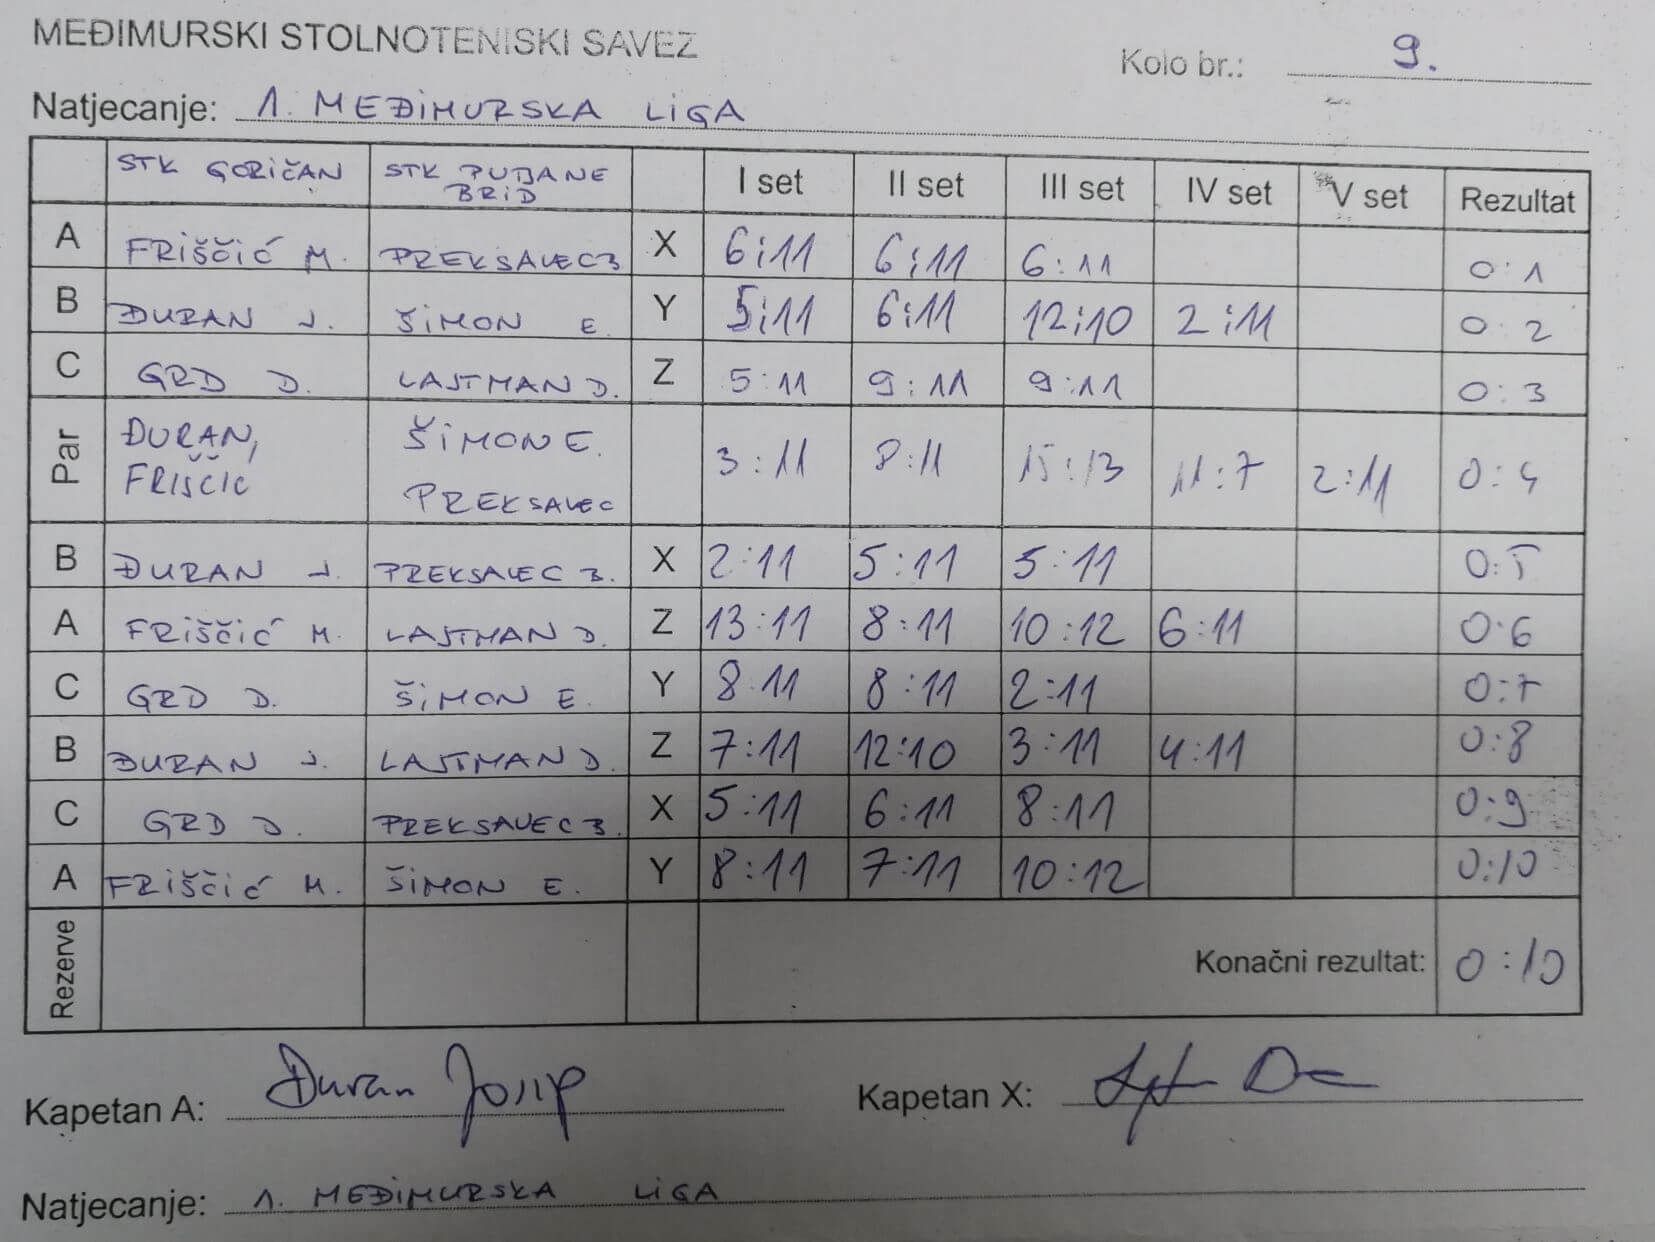 MEĐIMURSKI STOLNOTENISKI SAVEZ
Kolo br.: 9.
Natjecanje: 1. MEĐIMURSKA LIGA
STK GORIČAN STK PUŽANE BRID I set II set III set IV set V set Rezultat
A FRIŠČIĆ M. PREKSAVEC B X 6:11 6:11 6:11 0:1
B ĐURAN J. ŠIMON E. Y 5:11 6:11 12:10 2:11 0:2
C GRD D. LAJTMAN D. Z 5:11 9:11 9:11 0:3
Par ĐURAN, FRIŠČIĆ ŠIMON E. PREKSAVEC 3:11 8:11 15:13 11:7 2:11 0:4
B ĐURAN J. PREKSAVEC B. X 2:11 5:11 5:11 0:5
A FRIŠČIĆ M. LAJTMAN D. Z 13:11 8:11 10:12 6:11 0:6
C GRD D. ŠIMON E. Y 8:11 8:11 2:11 0:7
B ĐURAN J. LAJTMAN D. Z 7:11 12:10 3:11 4:11 0:8
C GRD D. PREKSAVEC B. X 5:11 6:11 8:11 0:9
A FRIŠČIĆ M. ŠIMON E. Y 8:11 7:11 10:12 0:10
Rezerve Konačni rezultat: 0:10
Kapetan A: Đuran Josip Kapetan X:
Natjecanje: 1. MEĐIMURSKA LIGA